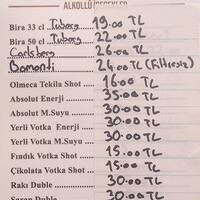 ALKOLLÜ İÇECEKLER
Bira 33 cl Tuborg 19.00 TL
Bira 50 cl Tuborg 22.00 TL
Carlsberg 26.00 TL
Bomonti 24.00 TL (Filtresiz)
Olmeca Tekila Shot 16.00 TL
Absolut Enerji 35.00 TL
Absolut M.Suyu 30.00 TL
Yerli Votka Enerji 30.00 TL
Yerli Votka M.Suyu 30.00 TL
Fındık Votka Shot 15.00 TL
Çikolata Votka Shot 15.00 TL
Rakı Duble 30.00 TL
Şarap Duble 30.00 TL